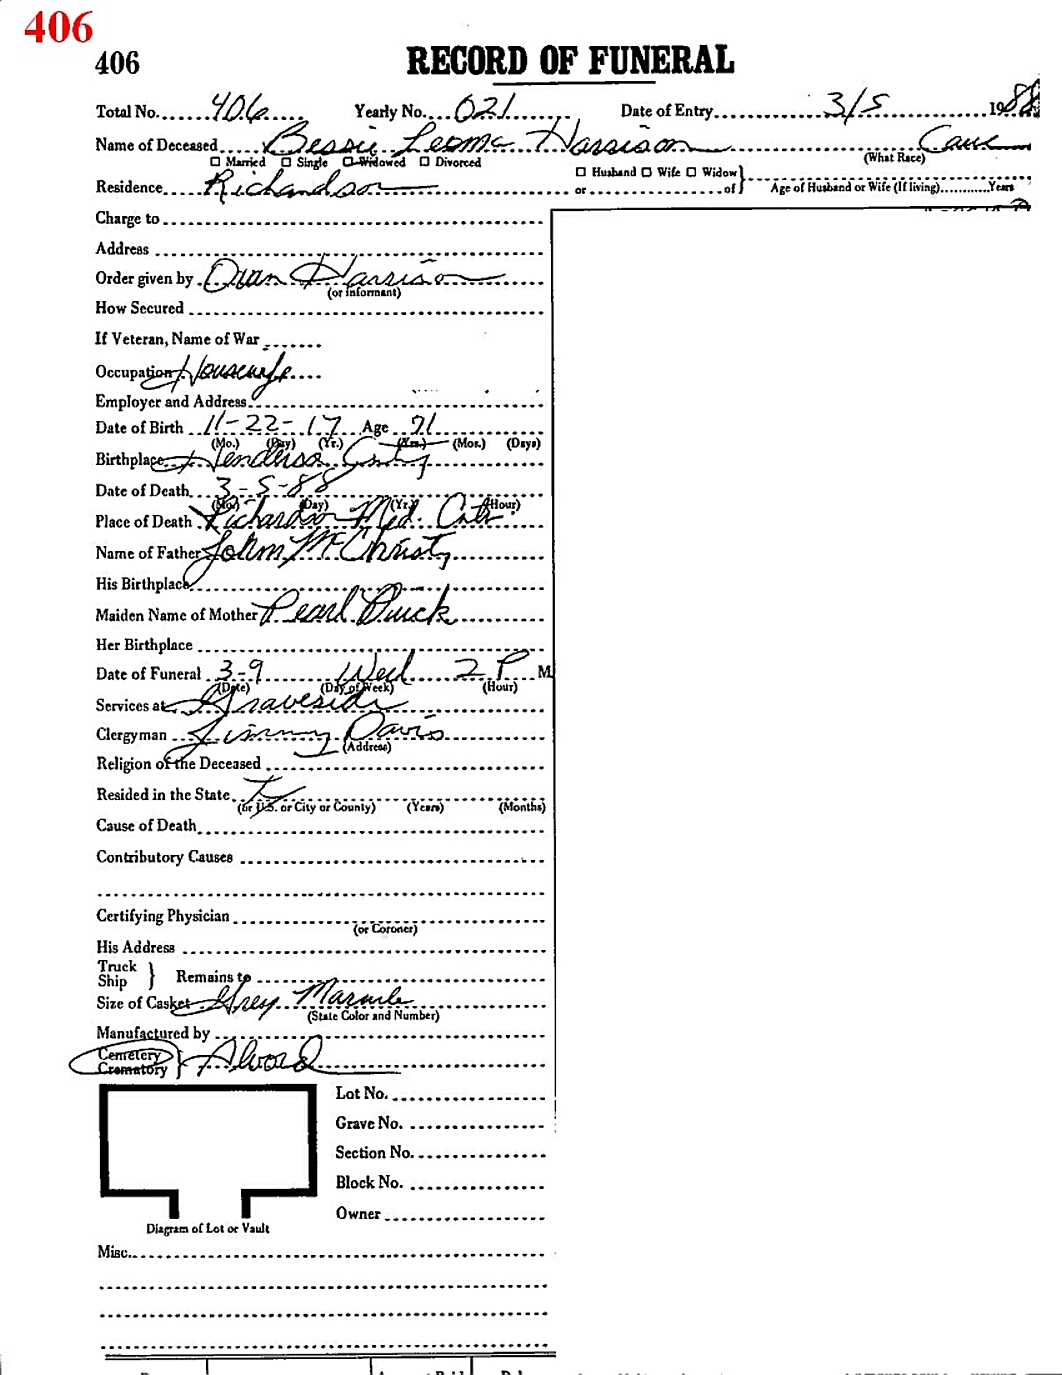 406
406 RECORD OF FUNERAL
Total No. 406 Yearly No. 021 Date of Entry 3/5 1988
Name of Deceased Bessie Leoma Harrison Cauc
☐ Married ☐ Single ☐ Widowed ☐ Divorced (What Race)
Residence Richardson ☐ Husband ☐ Wife ☐ Widow } or of Age of Husband or Wife (If living) Years
Charge to
Address
Order given by Harrison
(or informant)
How Secured
If Veteran, Name of War
Occupation Housewife
Employer and Address
Date of Birth 11-22-17 Age 71
(Mo.) (Day) (Yr.) (Yrs.) (Mos.) (Days)
Birthplace Henderson Cnty
Date of Death 3-5-88
(Mo.) (Day) (Yr.) (Hour)
Place of Death Richardson Med. Cntr
Name of Father John McChristy
His Birthplace
Maiden Name of Mother Pearl
Her Birthplace
Date of Funeral 3-9 Wed 2 P M
(Date) (Day of Week) (Hour)
Services at Graveside
Clergyman Jimmy Davis
(Address)
Religion of the Deceased
Resided in the State
(or U.S. or City or County) (Years) (Months)
Cause of Death
Contributory Causes
Certifying Physician
(or Coroner)
His Address
Truck
Ship } Remains to
Size of Casket Grey
(State Color and Number)
Manufactured by
Cemetery
Crematory } Alvord
Lot No.
Grave No.
Section No.
Block No.
Owner
Diagram of Lot or Vault
Misc.